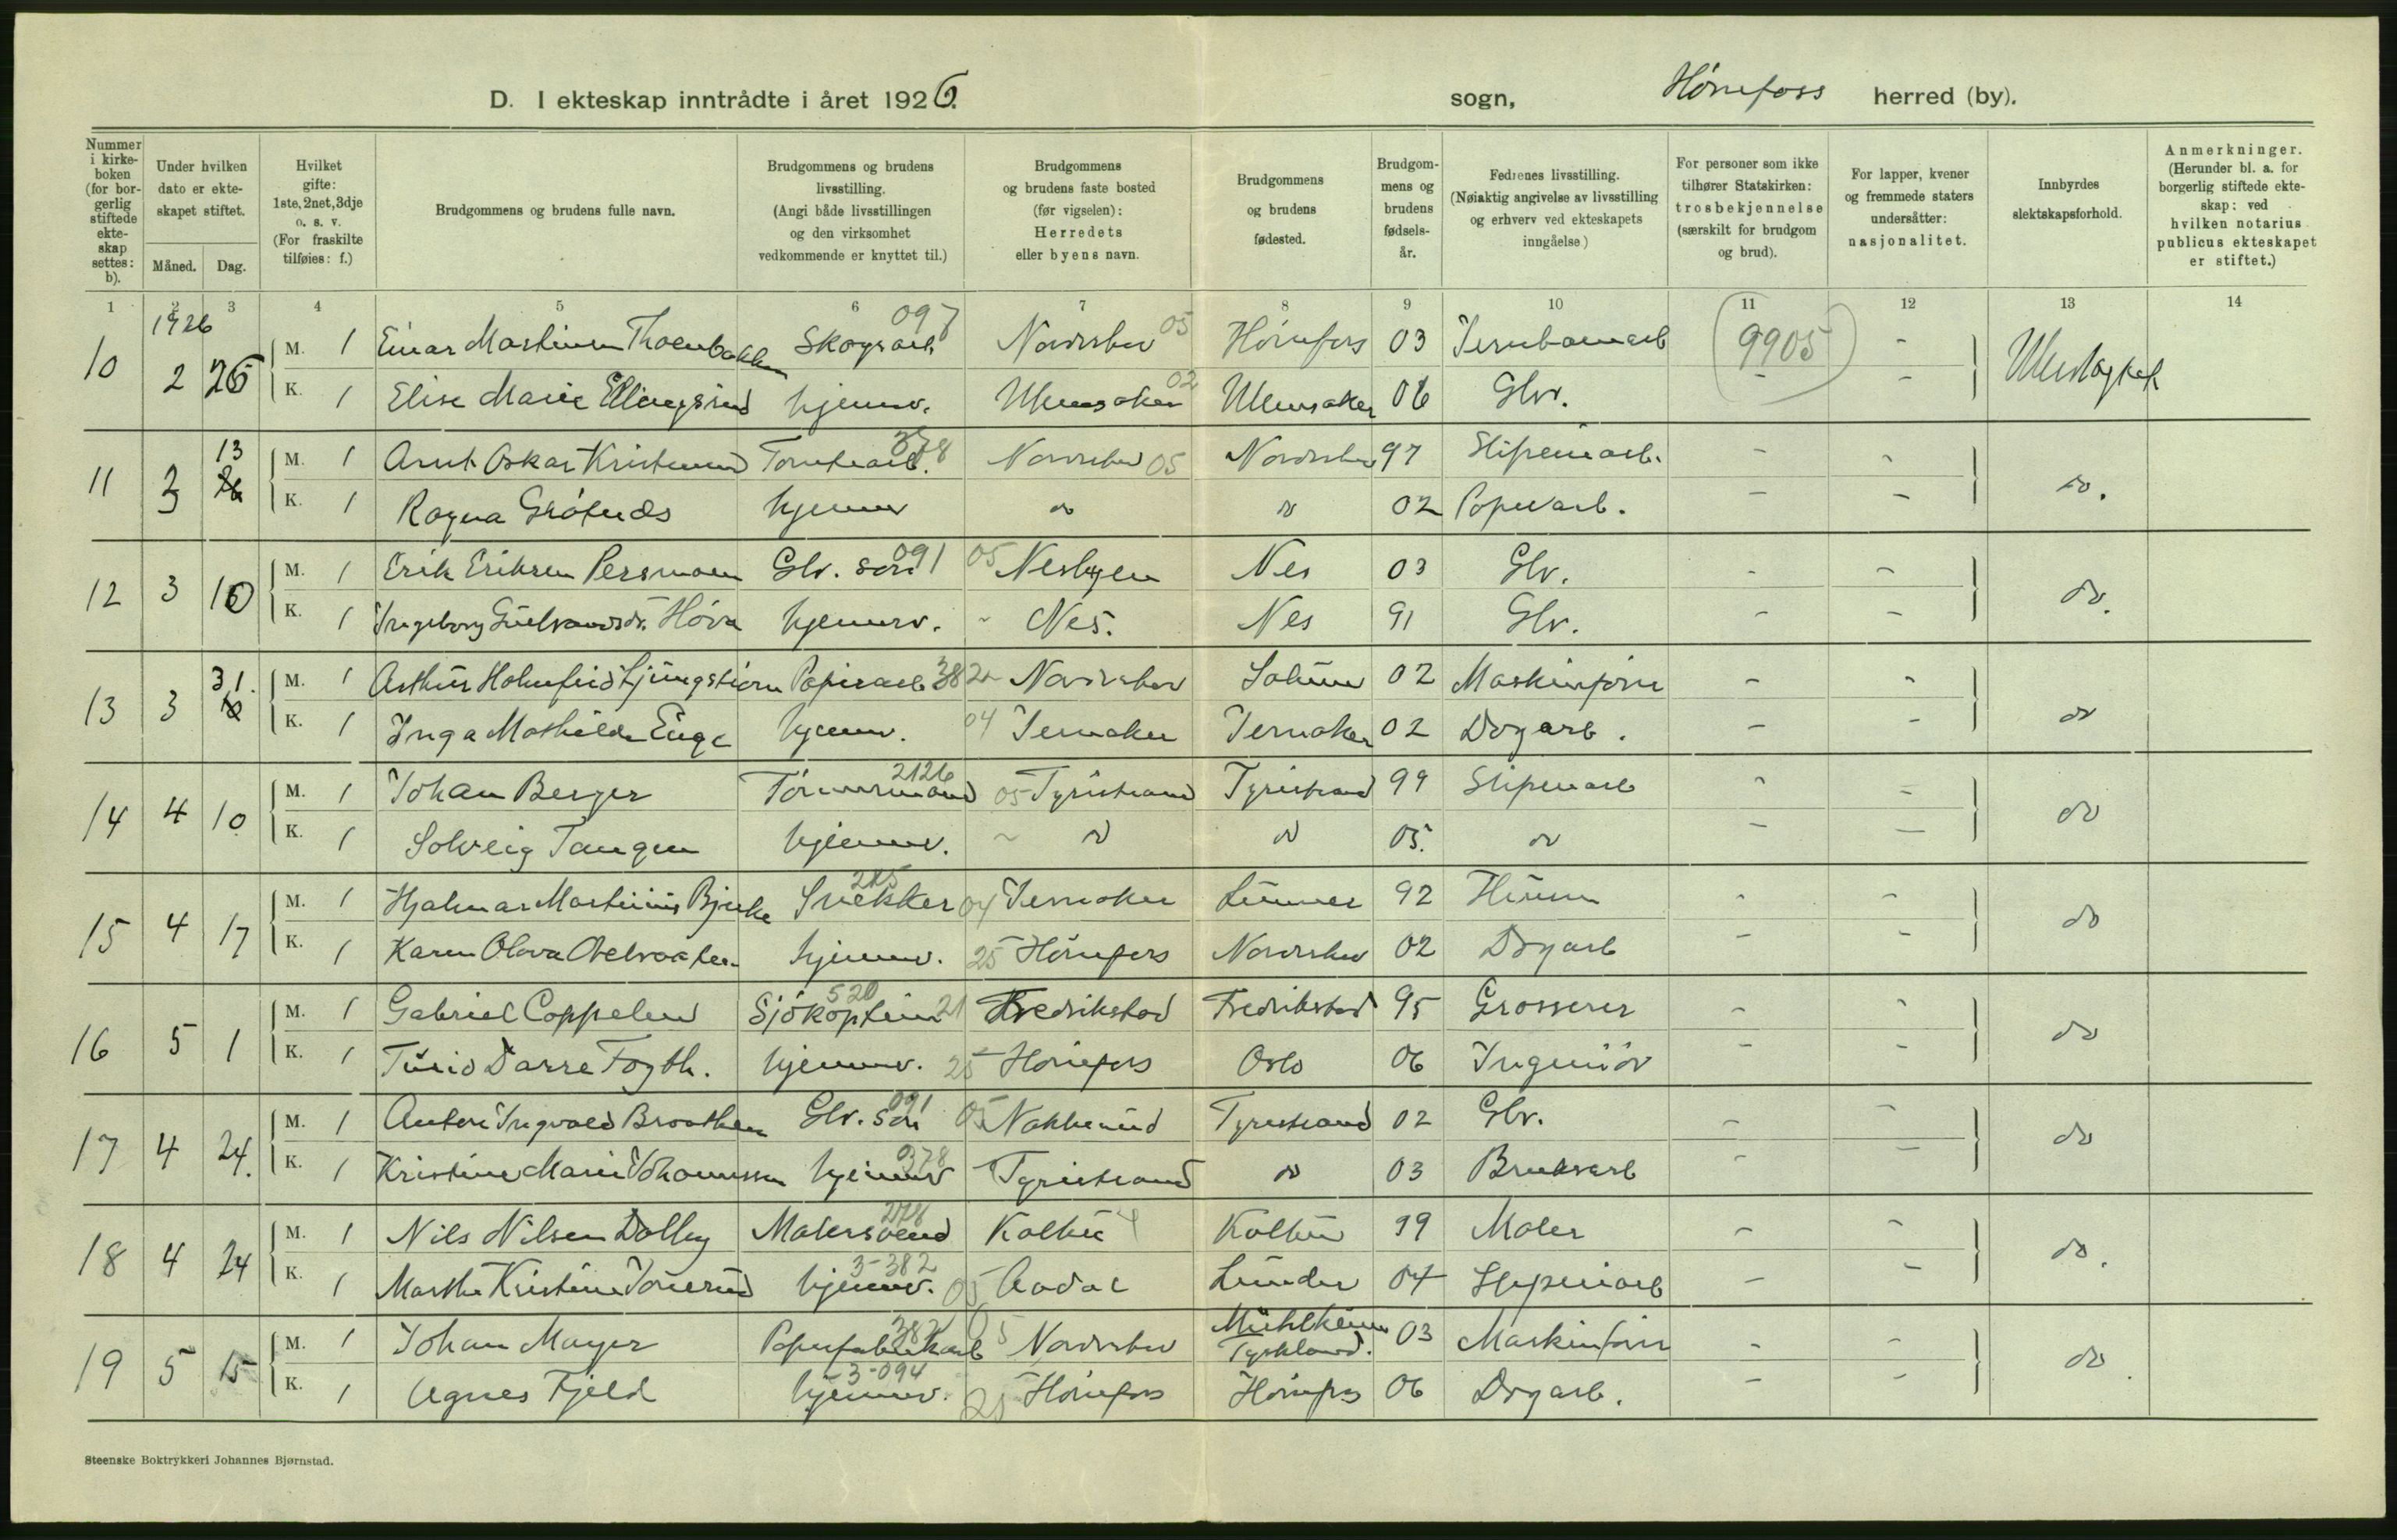 D. I ekteskap inntrådte i året 1926.
sogn, Hønefoss herred (by).
Nummer i kirke-boken (for bor-gerlig stiftede ekte-skap settes: b).
Under hvilken dato er ekte-skapet stiftet.
Måned. Dag.
Hvilket gifte: 1ste, 2net, 3dje o. s. v. (For fraskilte tilføies: f.)
Brudgommens og brudens fulle navn.
Brudgommens og brudens livsstilling. (Angi både livsstillingen og den virksomhet vedkommende er knyttet til.)
Brudgommens og brudens faste bosted (før vigselen): Herredets eller byens navn.
Brudgommens og brudens fødested.
Brudgom-mens og brudens fødsels-år.
Fedrenes livsstilling. (Nøiaktig angivelse av livsstilling og erhverv ved ekteskapets inngåelse.)
For personer som ikke tilhører Statskirken: trosbekjennelse (særskilt for brudgom og brud).
For lapper, kvener og fremmede staters undersåtter: nasjonalitet.
Innbyrdes slektskapsforhold.
Anmerkninger. (Herunder bl. a. for borgerlig stiftede ekte-skap: ved hvilken notarius publicus ekteskapet er stiftet.)
1 2 3 4 5 6 7 8 9 10 11 12 13 14
1926
10 2 26 M. 1 Einar Martinsen Thoenbakken Skogsarb. 097 Norderhov 05 Hønefoss 03 Jernbanearb 9905 - Ubeslægtet
K. 1 Elise Marie Ellingsrud hjemmev. Ullensaker 02 Ullensaker 06 Gbr. - -
11 3 13 M. 1 Arnt Oskar Kristensen Tomtearb. 378 Norderhov 05 Norderhov 97 Sliperiarb. - - do.
K. 1 Ragna Grøfnæs hjemmev do do 02 Papirarb. - -
12 3 10 M. 1 Erik Eriksen Persmoen Gbr. søn 091 05 Nesbyen Nes 03 Gbr. - - do.
K. 1 Ingeborg Gulbrandsdr. Hove hjemmev. - Nes. Nes 91 Gbr. - -
13 3 31. M. 1 Arthur Holmfrid Ljungstrøm Papirarb 382 Norderhov Solum 02 Maskinfører - - do
K. 1 Inga Mathilde Enge hjemmev. 04 Jevnaker Jevnaker 02 Dagarb. - -
14 4 10 M. 1 Johan Berger Tømmermand 2126 05 Tyristrand Tyristrand 99 Sliperiarb - - do
K. 1 Solveig Tangen hjemmev. ~ do do 05. do - -
15 4 17 M. 1 Hjalmar Martinius Bjerke Snekker 215 04 Jevnaker Lunner 92 Husm - - do
K. 1 Karen Olava hjemmev. 25 Hønefoss Norderhov 02 Dagarb - -
16 5 1 M. 1 Gabriel Coppelen Sjökaptein 520 21 Fredrikstad Fredrikstad 95 Grosserer - - do
K. 1 Turid Darre Fogth. hjemmev. 25 Hønefoss Oslo 06 Ingeniør - -
17 4 24. M. 1 Anton Ingvald Braathen Gbr. søn 091 05 Nakkerud Tyristrand 02 Gbr. - - do
K. 1 Kristine Marie Johannessen hjemmev 378 Tyristrand do 03 Bruksarb - -
18 4 24 M. 1 Nils Nilsen Dalby Malersvend 278 Kolbu 4 Kolbu 99 Maler - - do.
K. 1 Marthe Kristine Tønerud hjemmev. 3-382 05 Aadal Lunder 04 Sliperiarb - -
19 5 15 M. 1 Johan Mayer Papirfabrikarb 382 05 Norderhov Mühlheim Tyskland. 03 Maskinfører - - do
K. 1 Agnes Fjeld hjemmev. 3-094 25 Hønefoss Hønefoss 06 Dagarb. - -
Steenske Boktrykkeri Johannes Bjørnstad.